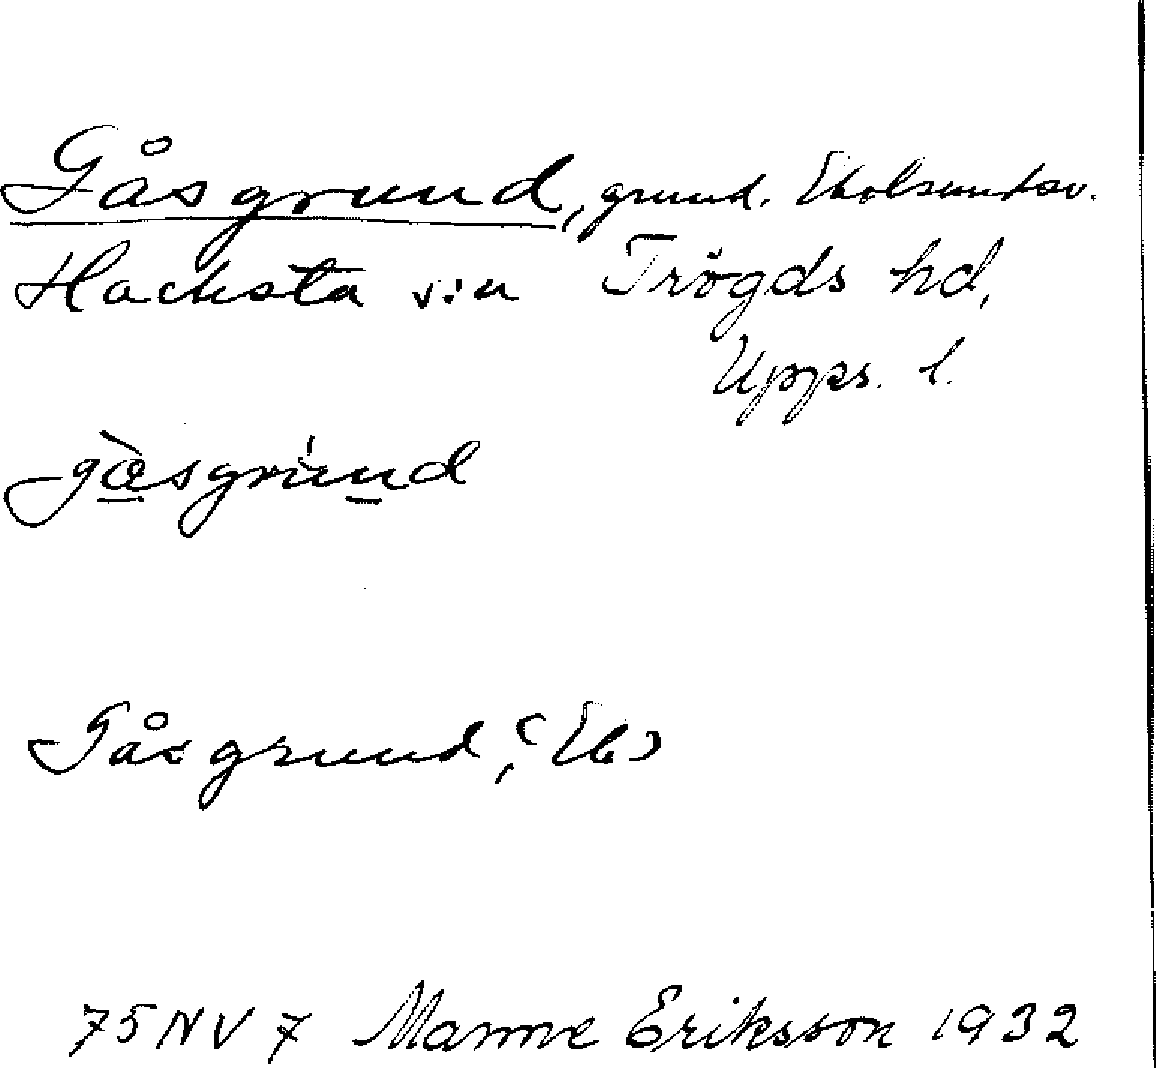 Gåsgrund, grund. Ekolsundsv.
Hacksta s:n Trögds hd,
Upps. l.
gàsgrúnd
Gåsgrund, (Ek)
75NV7 Manne Eriksson 1932